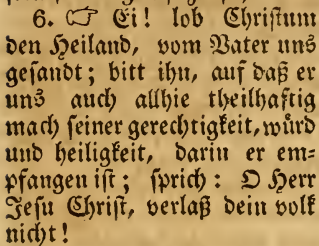 6. ☞ Ei! lob Christum
den Heiland, vom Vater uns
gesandt; bitt ihn, auf daß er
uns auch allhie theilhaftig
mach seiner gerechtigkeit, würd
und heiligkeit, darin er em=
pfangen ist; sprich: O Herr
Jesu Christ, verlaß dein volk
nicht!